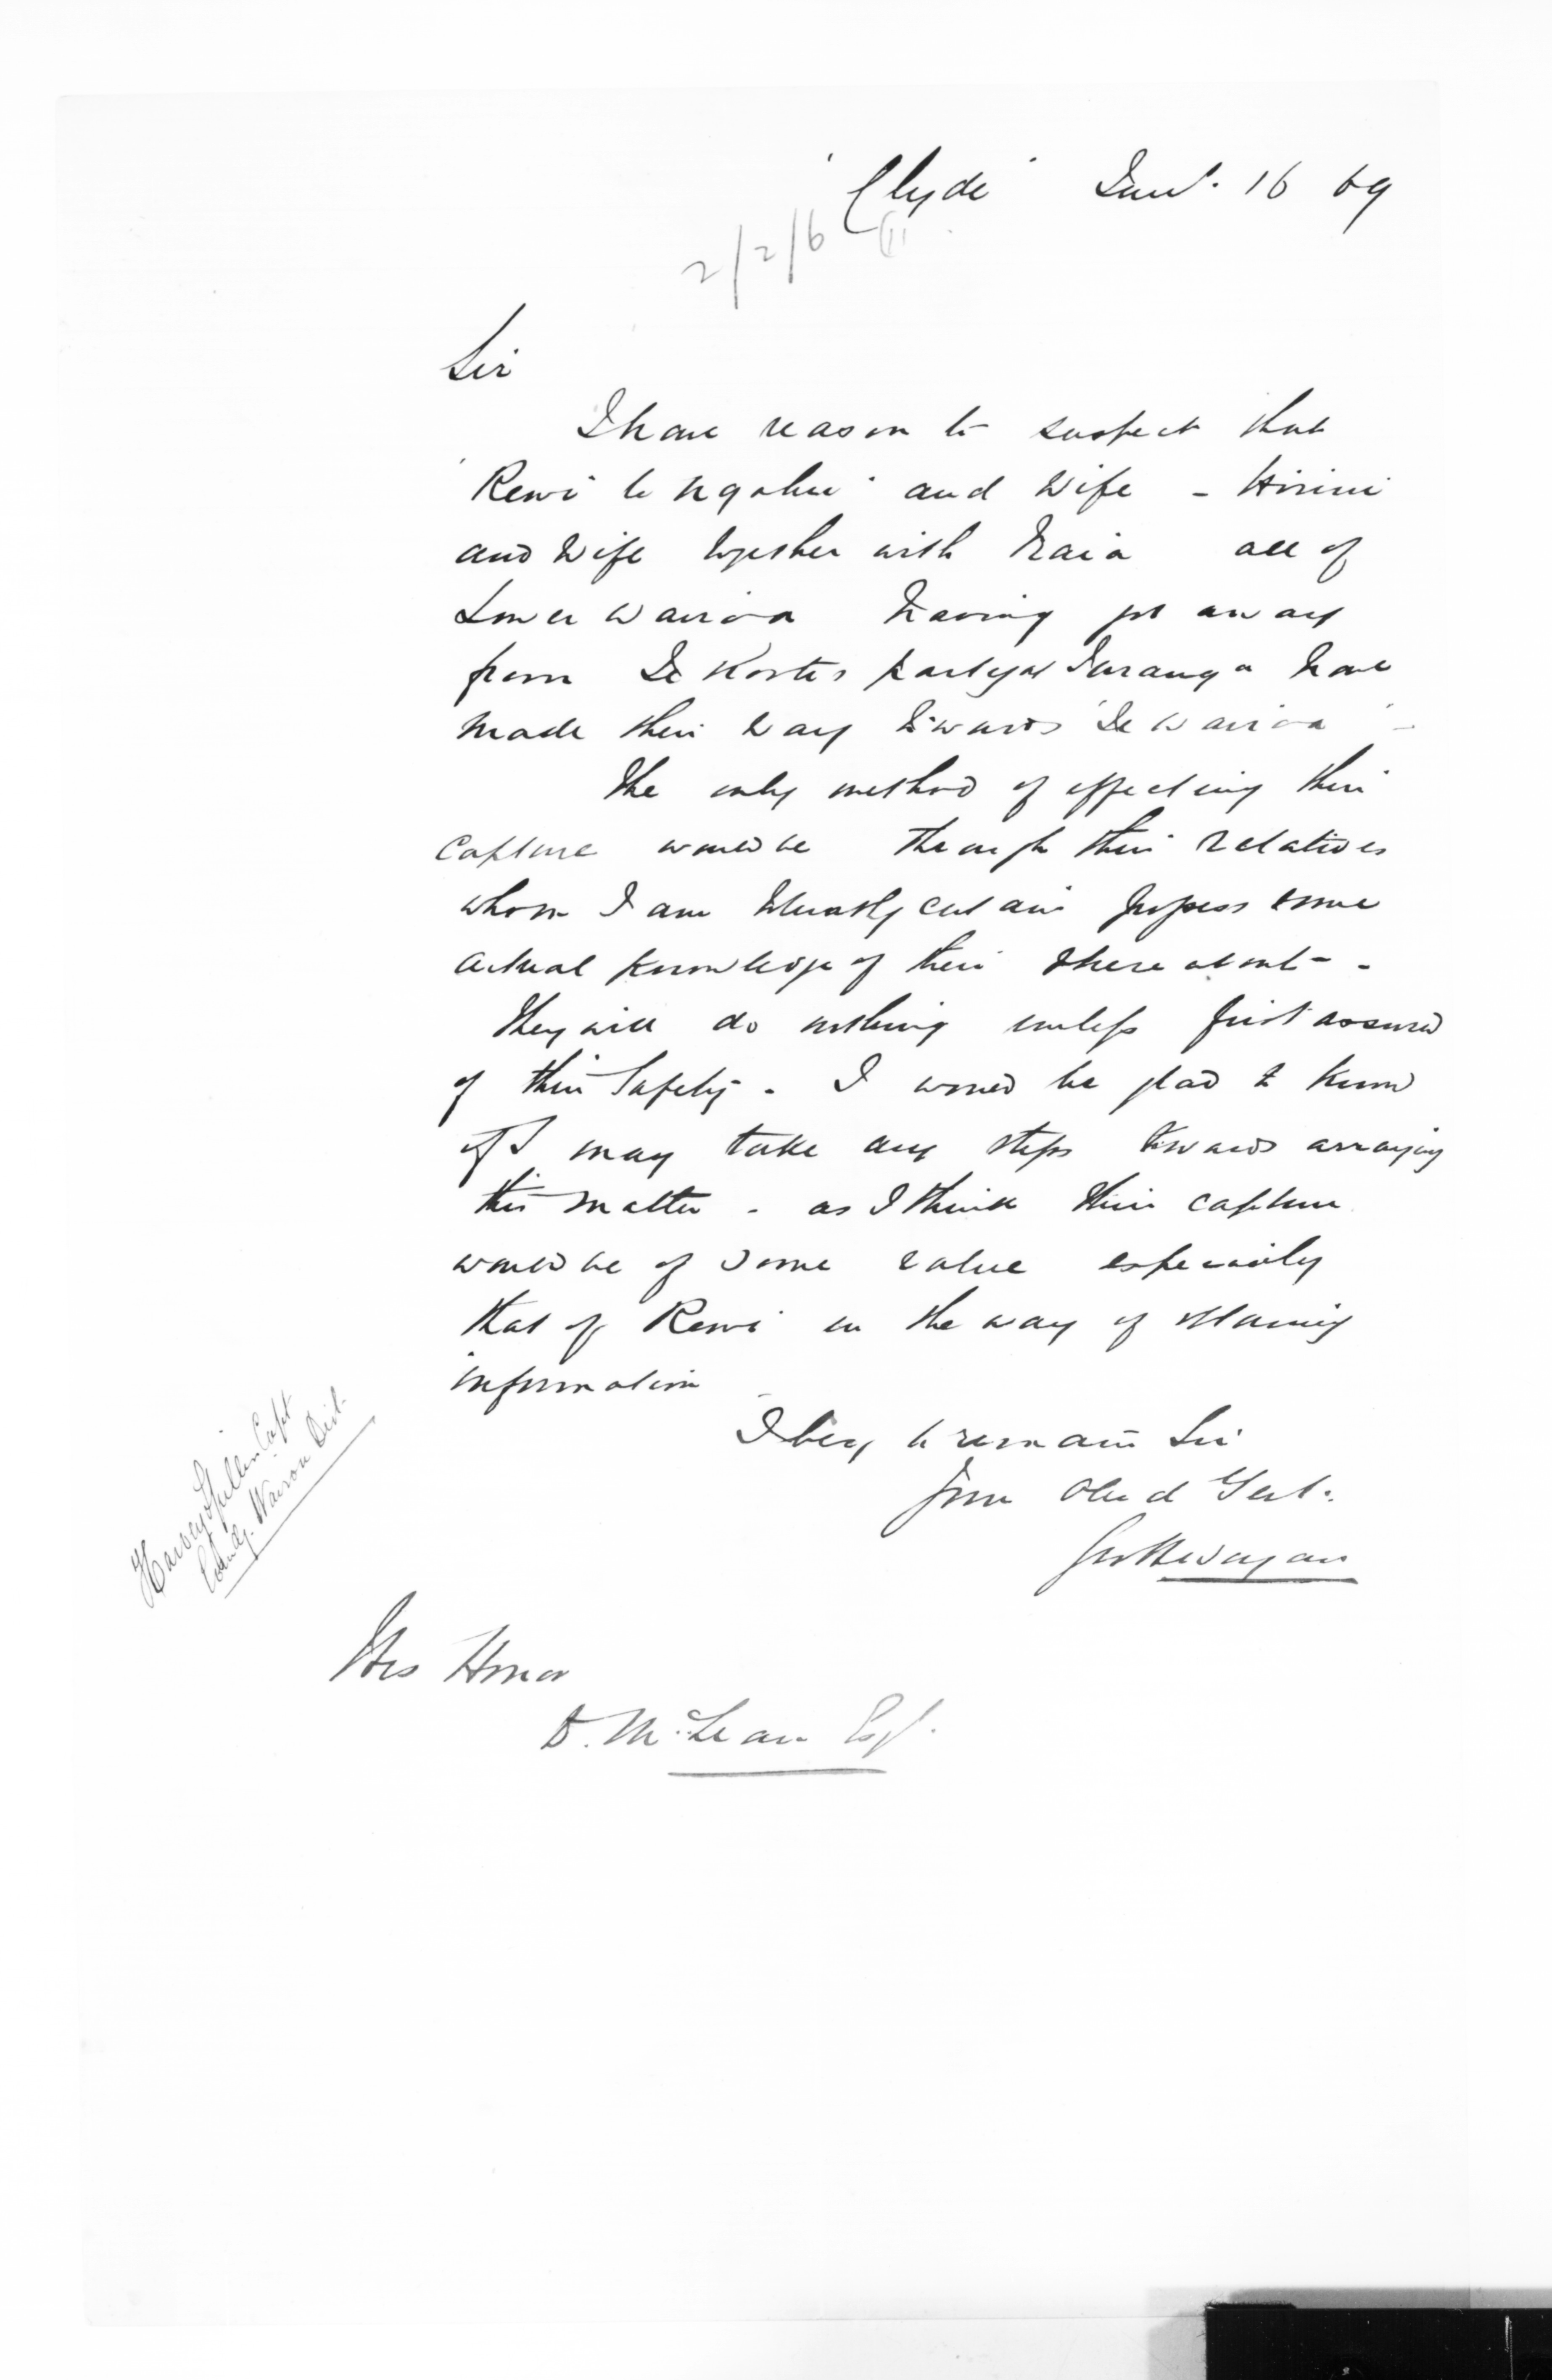 "Clyde" Jany. 16 69
2/2/6
Sir
I have reason to suspect that
"Rewi te Ngahu" and Wife - Hirini
and Wife together with Naia all of
Lower Wairoa having got away
from Te Kooti's party at Turanga have
made their way towards "Te Wairoa" -
The only method of effecting their
capture would be through their relatives
whom I am tolerably certain possess some
actual knowledge of their whereabouts -
They will do nothing unless first assured
of their safety - I would be glad to know
if I may take any steps towards arranging
this matter - as I think their capture
would be of some value especially
that of Rewi in the way of obtaining
information
I beg to remain Sir
Your Obed Servt.
Harvey Spiller Capt
Comdg. Wairoa Dist.
His Honor
D. McLean Esq.